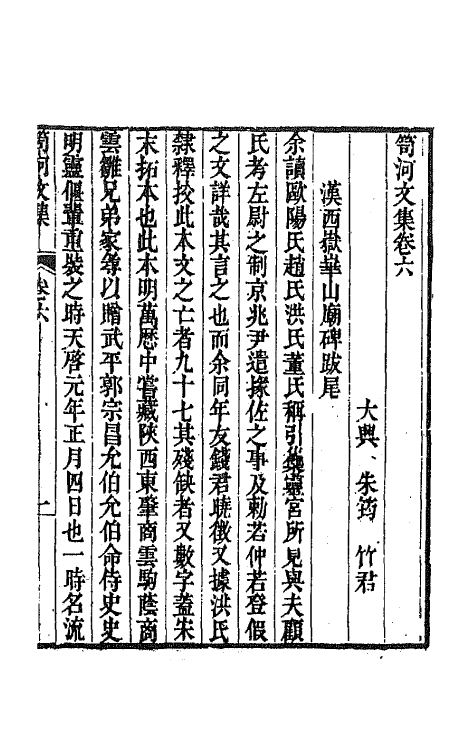 笥河文集卷六
大興 朱筠 竹君
漢西嶽華山廟碑跋尾
余讀歐陽氏趙氏洪氏董氏稱引集靈宮所見與夫顧
氏考左尉之制京兆尹遣掾佐之事及勅若仲若登假
之文詳哉其言之也而余同年友錢君曉徵又據洪氏
隸釋挍此本文之亡者九十七其殘缺者又數字蓋宋
末拓本也此本明萬歷中嘗藏陝西東肇商雲駒蔭商
雲雛兄弟家尋以贈武平郭宗昌允伯允伯命侍史史
明靈偃輩重裝之時天啓元年正月四日也一時名流
笥河文集
卷六
一